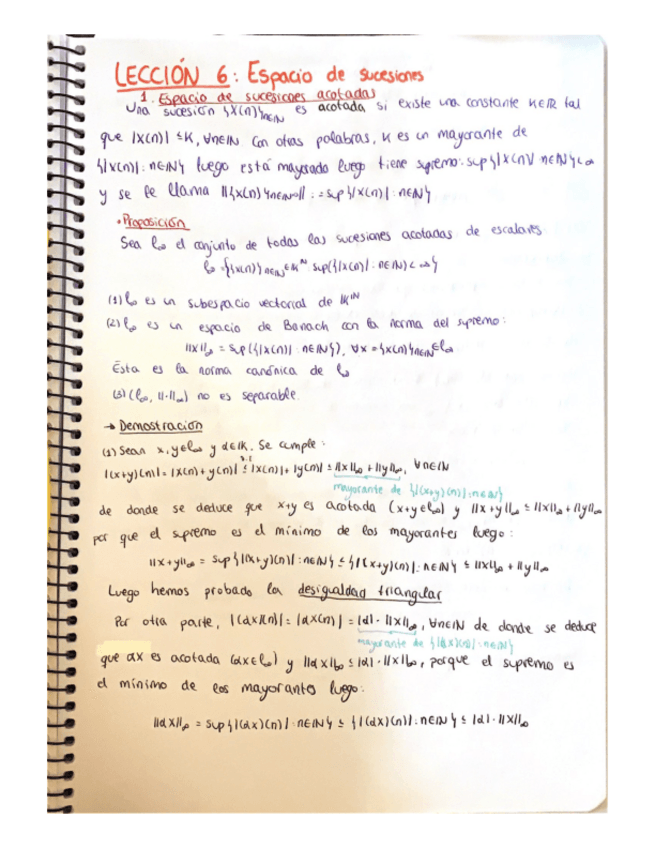 LECCIÓN 6: Espacio de sucesiones
1. Espacio de sucesiones acotadas
Una sucesión {X(n)}n∈ℕ es acotada si existe una constante K∈ℝ tal
que |X(n)| ≤ K, ∀n∈ℕ. Con otras palabras, K es un mayorante de
{|X(n)|: n∈ℕ} luego está mayorado luego tiene supremo: sup{|X(n)| n∈ℕ}<∞
y se le llama ||{X(n)}n∈ℕ|| := sup{|X(n)|: n∈ℕ}
• Proposición
Sea l∞ el conjunto de todas las sucesiones acotadas de escalares.
l∞ = {{X(n)}n∈ℕ ∈ 𝕂^ℕ sup({|X(n)|: n∈ℕ}) < ∞}
(1) l∞ es un subespacio vectorial de 𝕂^ℕ
(2) l∞ es un espacio de Banach con la norma del supremo:
||X||∞ = sup({|X(n)|: n∈ℕ}), ∀x = {X(n)}n∈ℕ ∈ l∞
Esta es la norma canónica de l∞
(3) (l∞, ||·||∞) no es separable.
→ Demostración
(1) Sean x, y ∈ l∞ y α∈𝕂. Se cumple:
|(x+y)(n)| = |X(n)+y(n)| ≤ |X(n)| + |y(n)| ≤ ||x||∞ + ||y||∞, ∀n∈ℕ
mayorante de {|(x+y)(n)|: n∈ℕ}
de donde se deduce que x+y es acotada (x+y∈l∞) y ||x+y||∞ ≤ ||x||∞ + ||y||∞
por que el supremo es el mínimo de los mayorantes luego:
||x+y||∞ = sup{|(x+y)(n)|: n∈ℕ} ≤ {|(x+y)(n)|: n∈ℕ} ≤ ||x||∞ + ||y||∞
Luego hemos probado la desigualdad triangular
Por otra parte, |(αx)(n)| = |αX(n)| = |α|·||X||∞, ∀n∈ℕ de donde se deduce
mayorante de {|(αx)(n)|: n∈ℕ}
que αx es acotada (αx∈l∞) y ||αx||∞ ≤ |α|·||x||∞, porque el supremo es
el mínimo de los mayorantes luego:
||αx||∞ = sup{|(αx)(n)|: n∈ℕ} ≤ {|(αx)(n)|: n∈ℕ} ≤ |α|·||x||∞